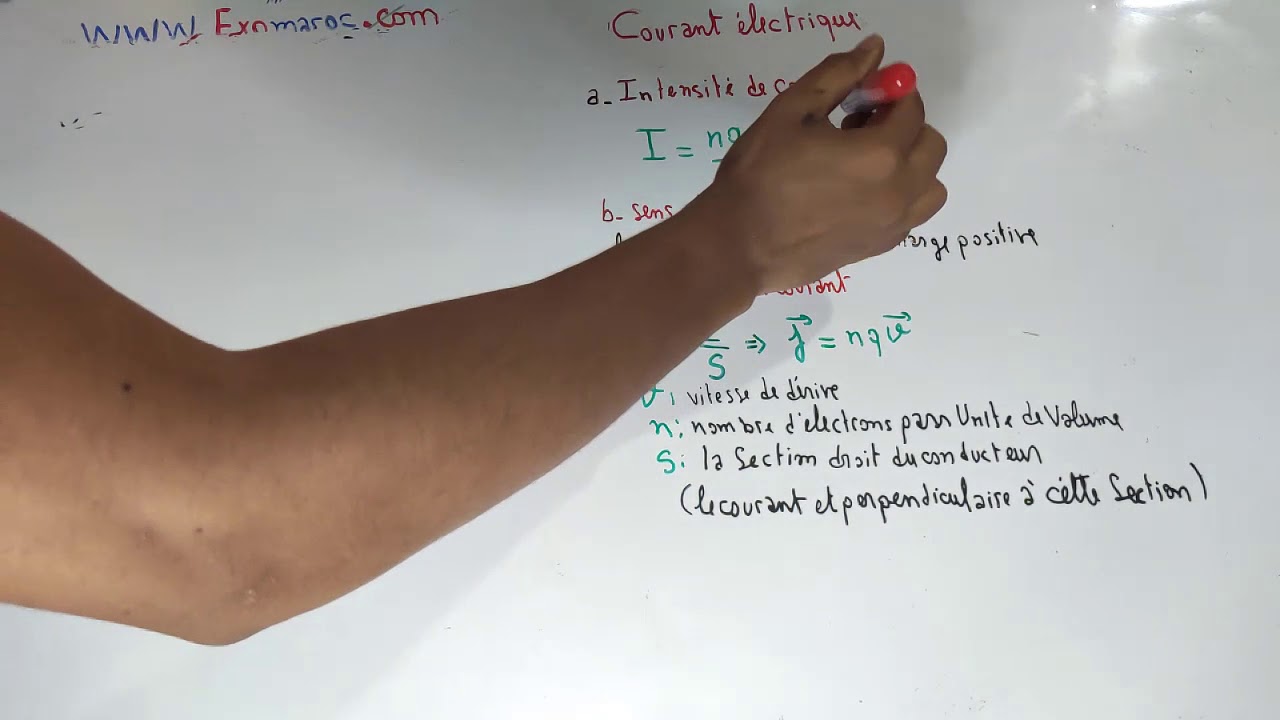 WWW Exnmaroc.com
Courant électrique
a- Intensité de
I =
b- sens
positive
⇒ j⃗ = nqv⃗
S
vitesse de dérive
n: nombre d'électrons parr Unite de Volume
S: la Section droit du conducteur
(le courant et perpendiculaire à cette Section)